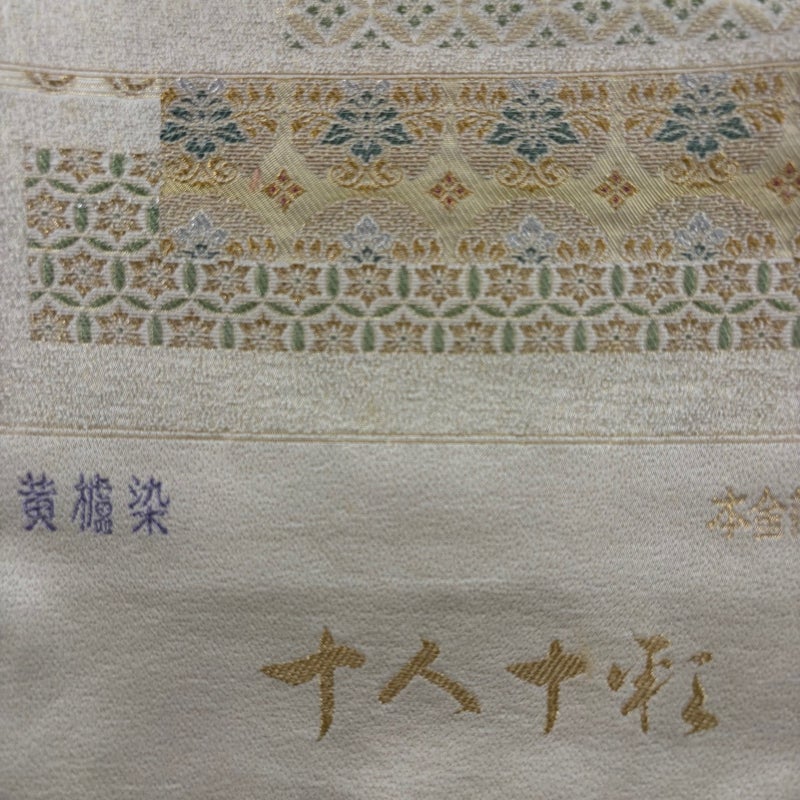 黄櫨染
本金
十人十彩